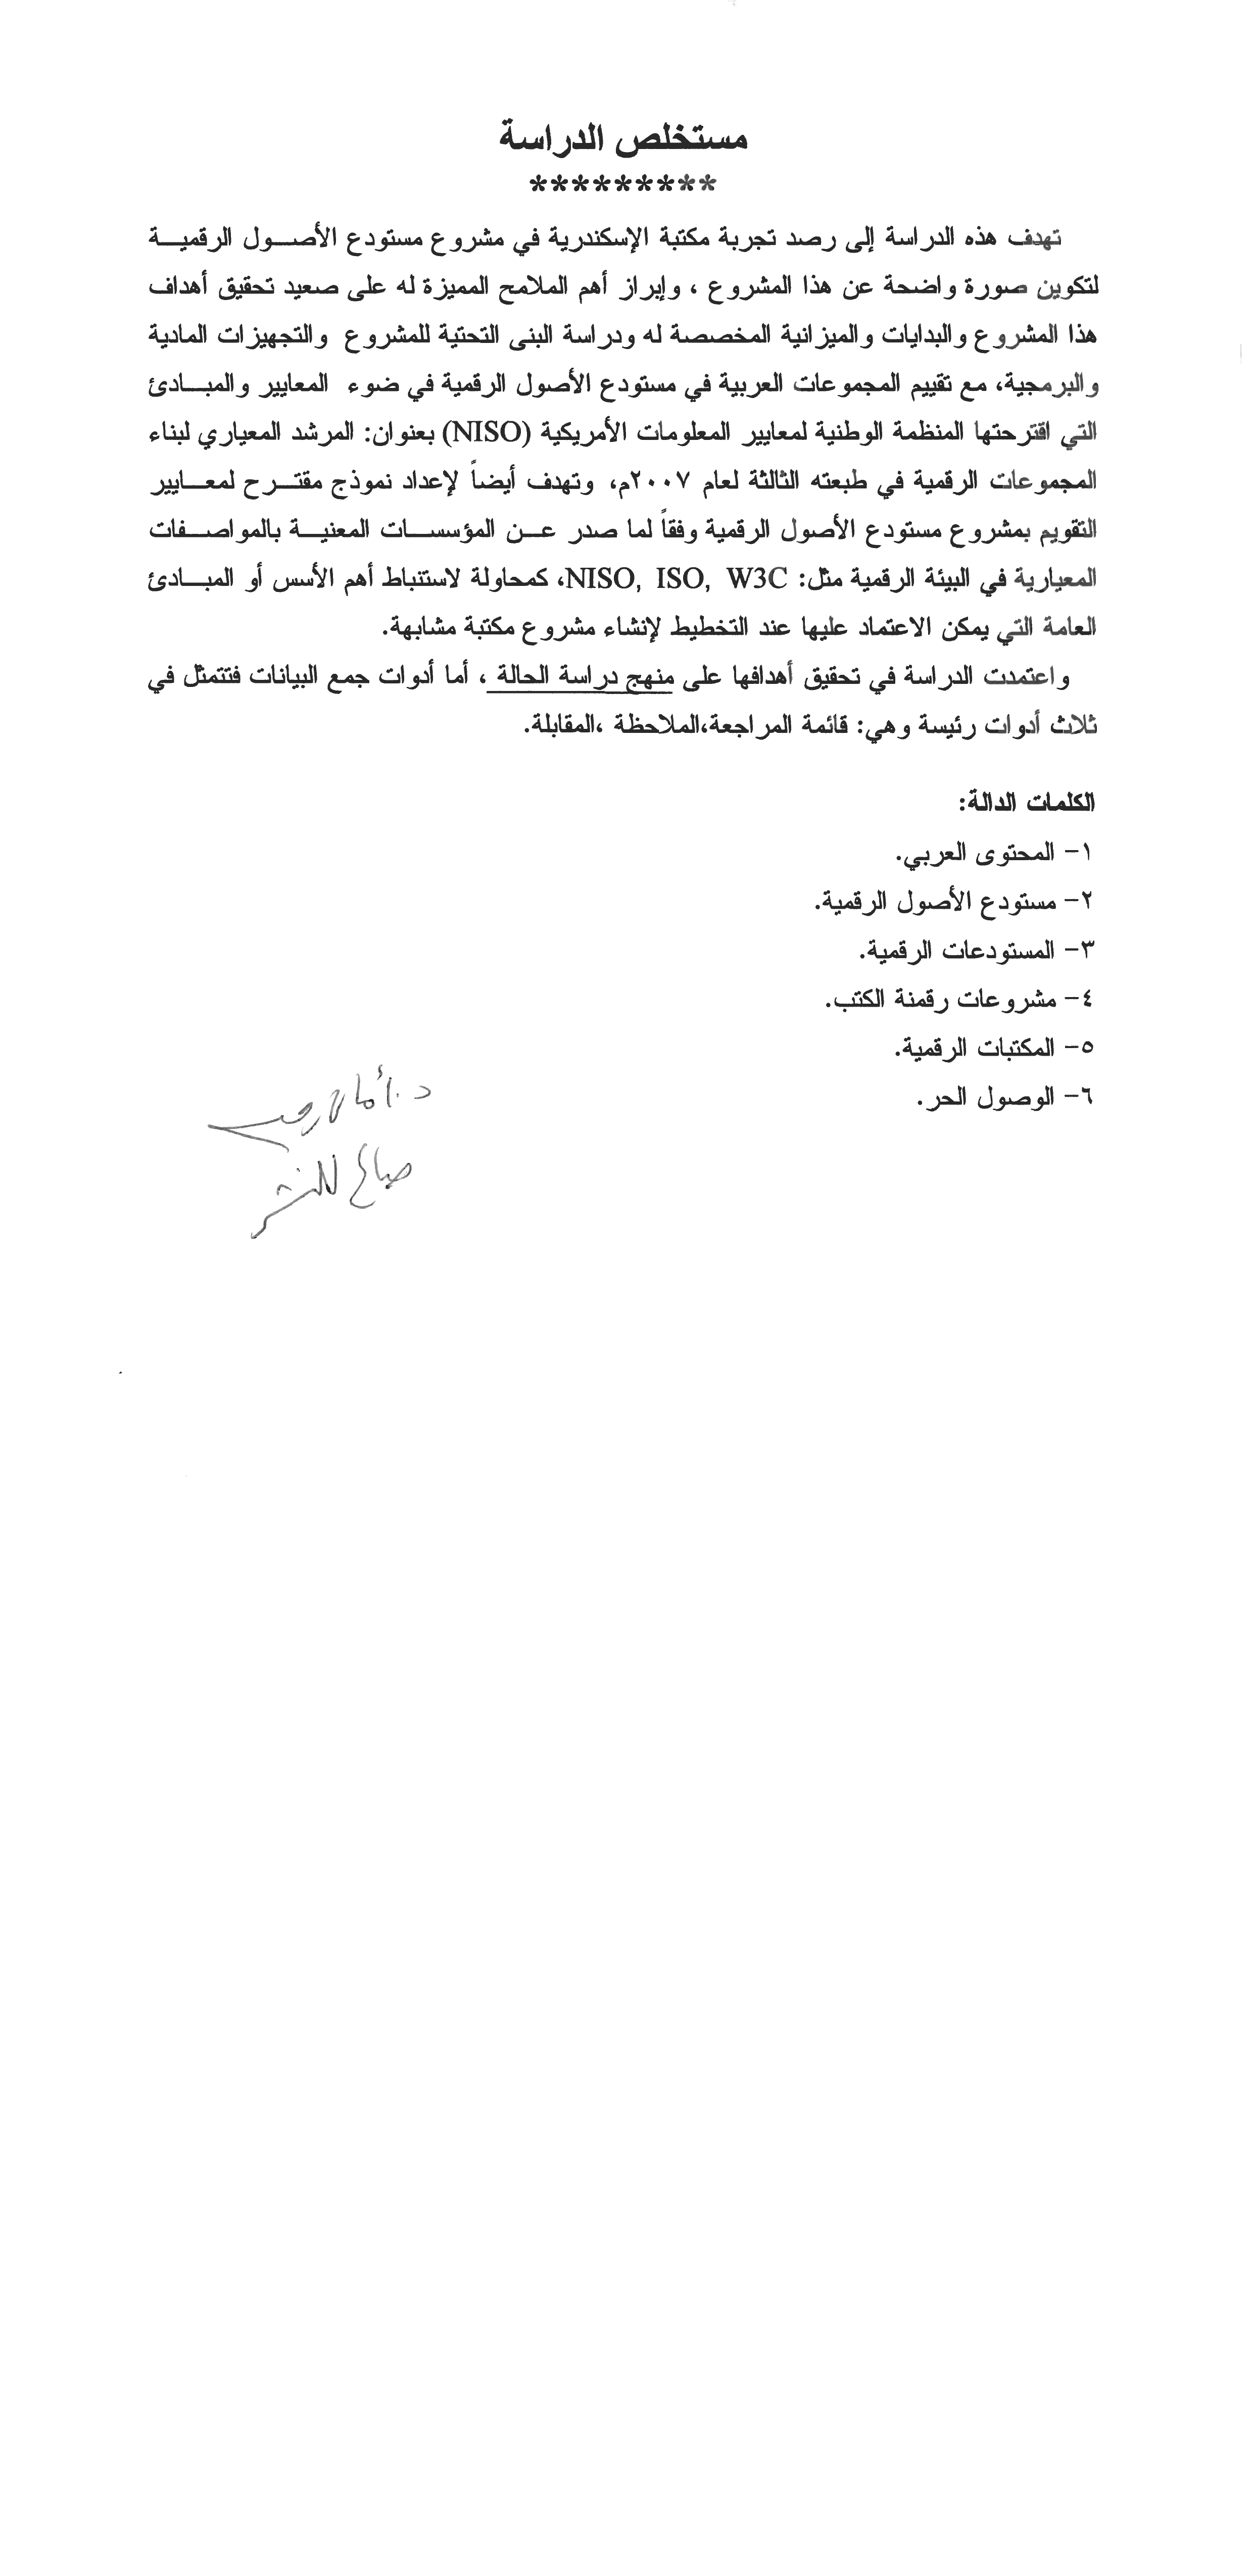 مستخلص الدراسة
*********
تهدف هذه الدراسة إلى رصد تجربة مكتبة الإسكندرية في مشروع مستودع الأصول الرقمية
لتكوين صورة واضحة عن هذا المشروع ، وإبراز أهم الملامح المميزة له على صعيد تحقيق أهداف
هذا المشروع والبدايات والميزانية المخصصة له ودراسة البنى التحتية للمشروع والتجهيزات المادية
والبرمجية، مع تقييم المجموعات العربية في مستودع الأصول الرقمية في ضوء المعايير والمبادئ
التي اقترحتها المنظمة الوطنية لمعايير المعلومات الأمريكية (NISO) بعنوان: المرشد المعياري لبناء
المجموعات الرقمية في طبعته الثالثة لعام ٢٠٠٧م، وتهدف أيضاً لإعداد نموذج مقترح لمعايير
التقويم بمشروع مستودع الأصول الرقمية وفقاً لما صدر عن المؤسسات المعنية بالمواصفات
المعيارية في البيئة الرقمية مثل: NISO, ISO, W3C، كمحاولة لاستنباط أهم الأسس أو المبادئ
العامة التي يمكن الاعتماد عليها عند التخطيط لإنشاء مشروع مكتبة مشابهة.
واعتمدت الدراسة في تحقيق أهدافها على منهج دراسة الحالة ، أما أدوات جمع البيانات فتتمثل في
ثلاث أدوات رئيسة وهي: قائمة المراجعة،الملاحظة ،المقابلة.
الكلمات الدالة:
١- المحتوى العربي.
٢- مستودع الأصول الرقمية.
٣- المستودعات الرقمية.
٤- مشروعات رقمنة الكتب.
٥- المكتبات الرقمية.
٦- الوصول الحر.
د.
صالح للنشر